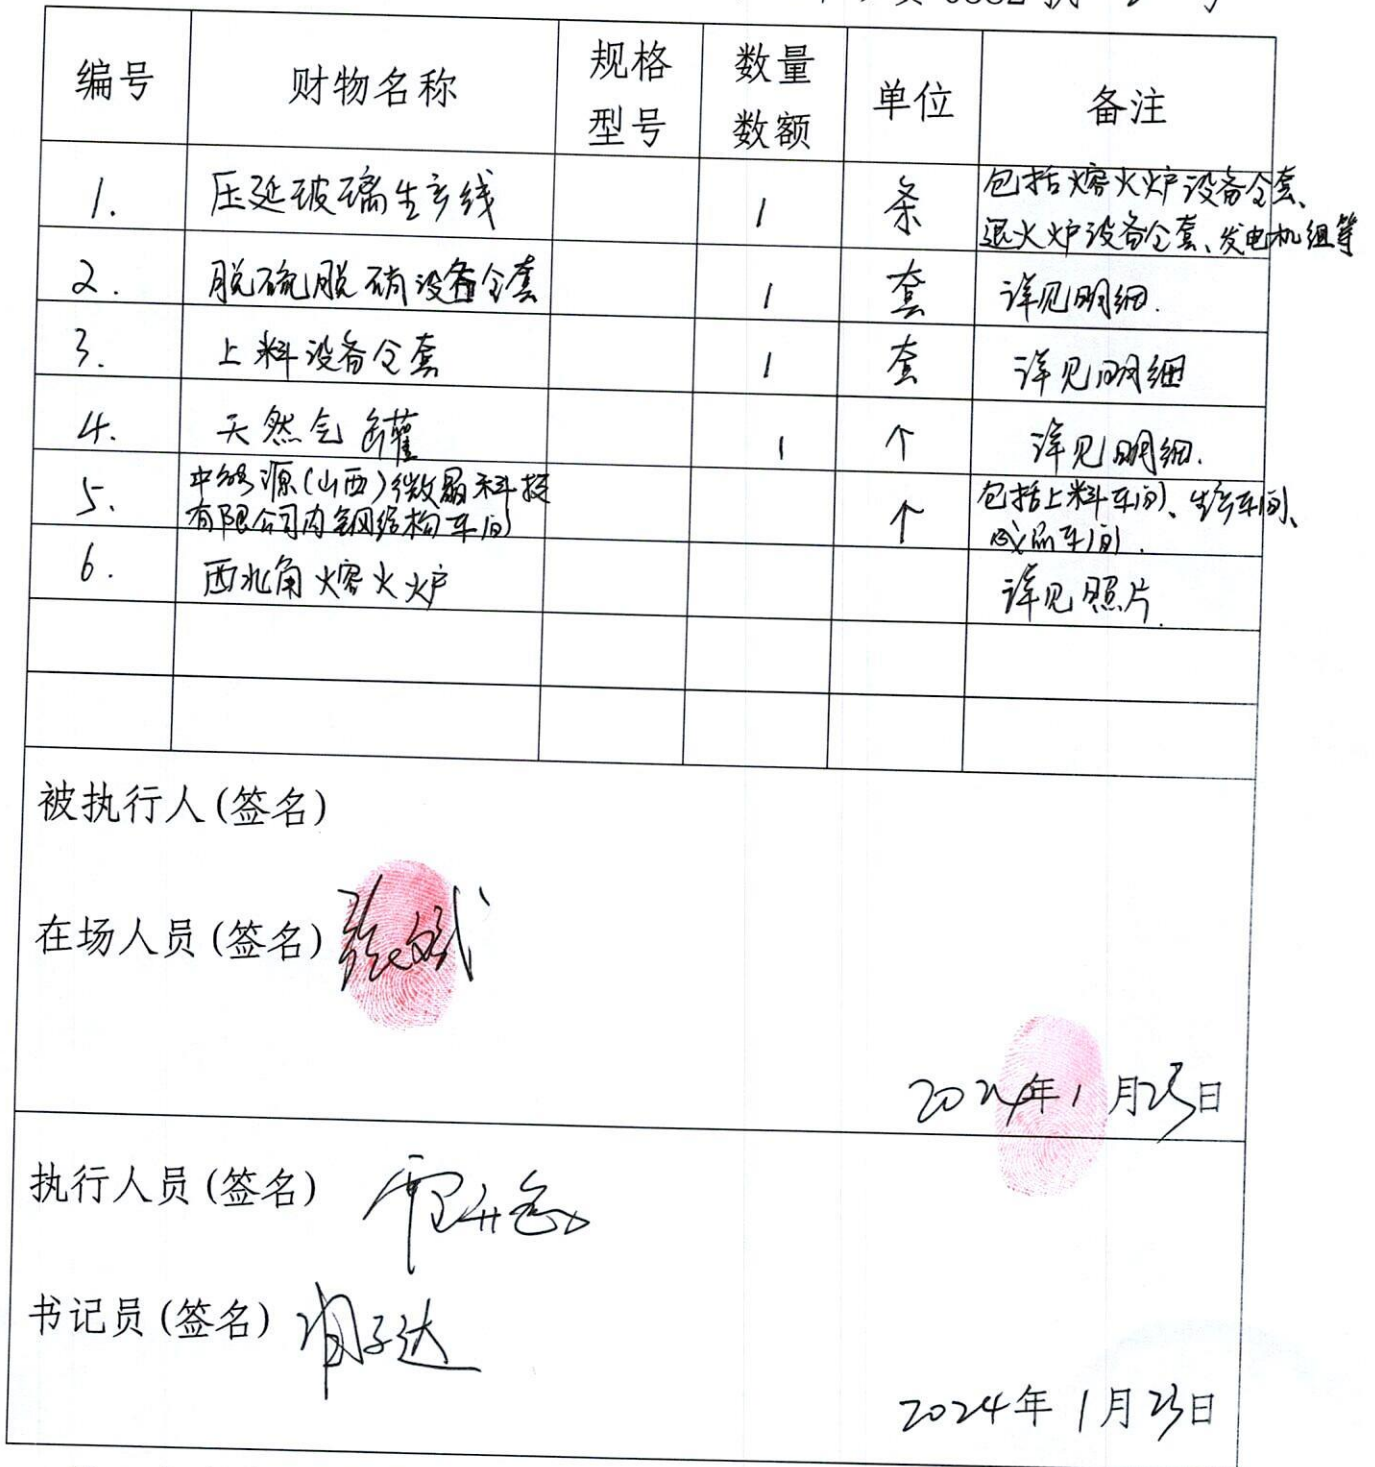 0882执
编号 财物名称 规格型号 数量数额 单位 备注
1. 压延玻璃生产线 1 条 包括熔火炉设备全套、
退火炉设备全套、发电机组等
2. 脱硫脱硝设备全套 1 套 详见明细.
3. 上料设备全套 1 套 详见明细
4. 天然气罐 1 个 详见明细.
5. 中能源(山西)微晶科技 个 包括上料车间、生产车间、
有限公司内钢结构车间 成品车间.
6. 西北角熔火炉 详见照片.
被执行人(签名)
在场人员(签名) 张斌
2024年1月23日
执行人员(签名)
书记员(签名)
2024年1月23日